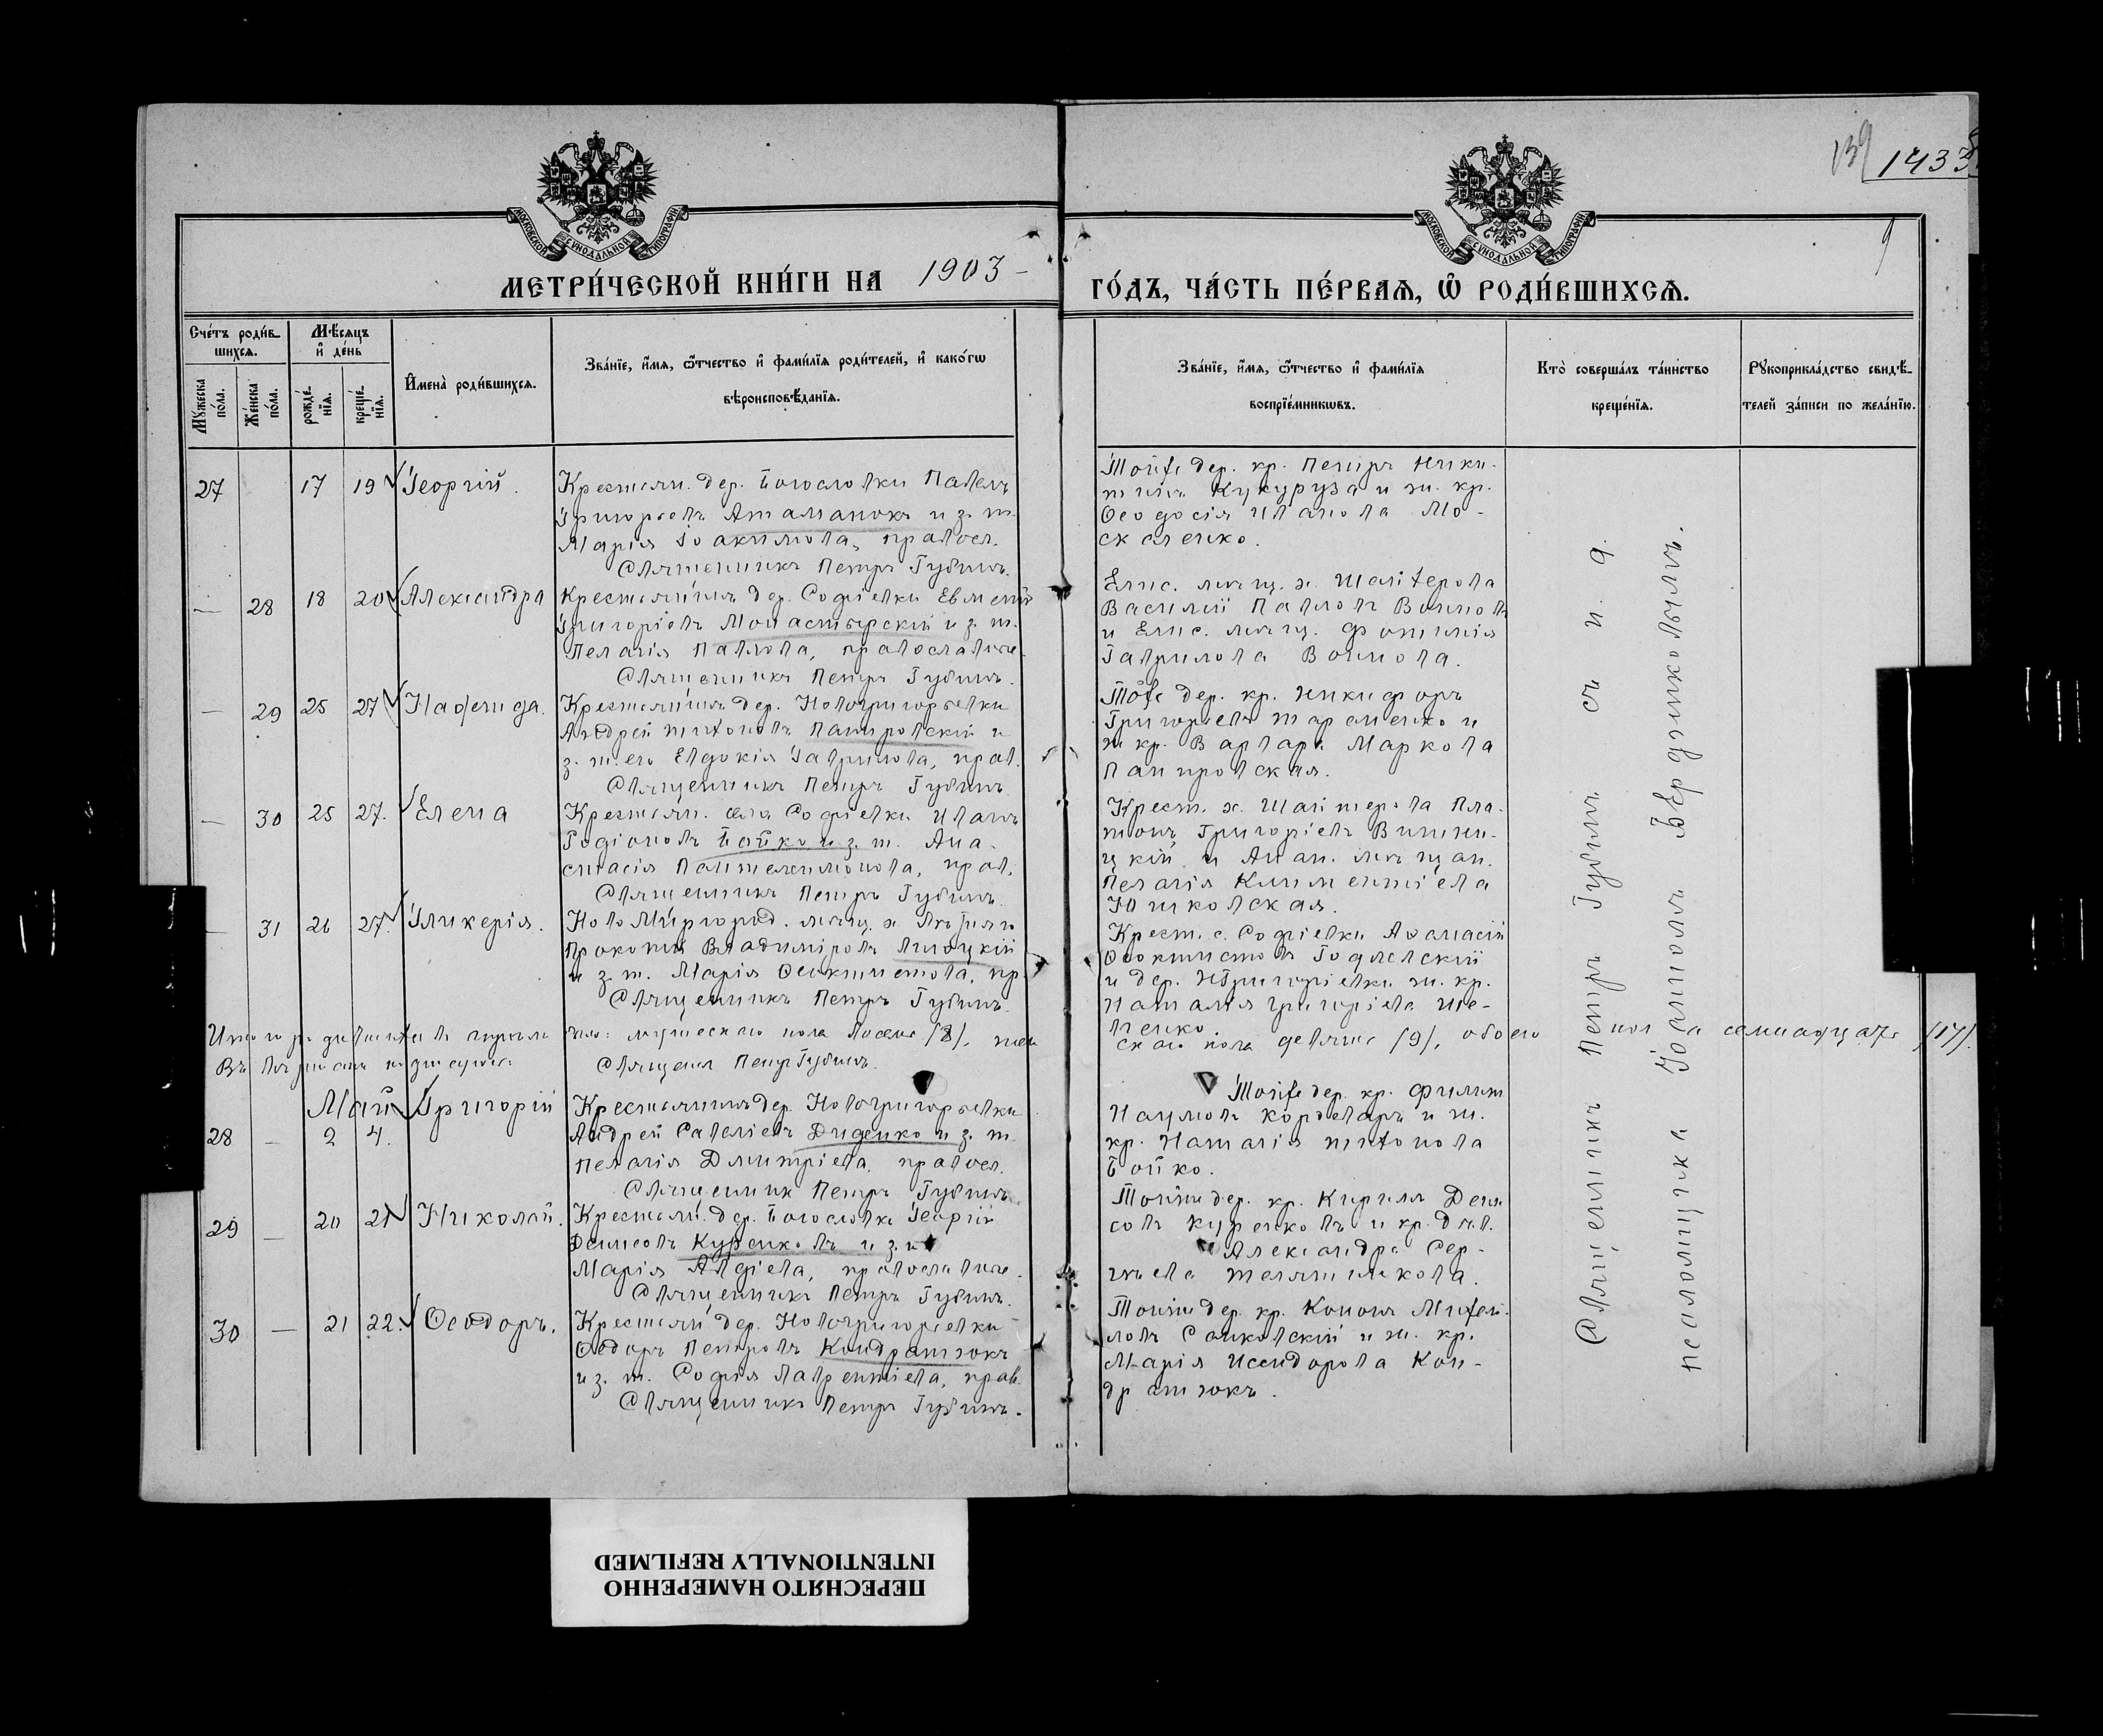 139
1433
МОСКОВСКОЙ СѴНОДАЛЬНОЙ ТИПОГРАФІИ
МОСКОВСКОЙ СѴНОДАЛЬНОЙ ТИПОГРАФІИ
МЕТРИ́ЧЕСКОЙ КНИ́ГИ НА 1903 -
ГО́ДЪ, ЧА́СТЬ ПЕ́РВАѦ, Ѽ РОДИ́ВШИХСѦ.
Сче́тъ роди́в-
шихсѧ.
Мѣ́сѧцъ
и҆ де́нь
Мꙋ́жеска по́ла.
Же́нска по́ла.
рожде́-
нїѧ.
креще́-
нїѧ.
И҆мена̀ роди́вшихсѧ.
Зва́нїе, и҆́мѧ, ѻ҆́тчество и҆ фами́лїѧ роди́телей, и҆ како́гѡ
вѣроисповѣ́данїѧ.
Зва́нїе, и҆́мѧ, ѻ҆́тчество и҆ фами́лїѧ
воспрїе́мникѡвъ.
Кто̀ соверша́лъ та́инство
креще́нїѧ.
Рꙋкоприкла́дство свидѣ́-
телей за́писи по жела́нїю.
27 17 19 Георгій.
Крестьян. дер. Богословки Павелъ
Григорьевъ Атаманюкъ и з. ж.
Марія Іоакимова, правосл.
Священникъ Петръ Губинъ.
Тойже дер. кр. Петръ Ники-
тинъ Кукуруза и ж. кр.
Ѳеодосія Иванова Мо-
скаленко.
— 28 18 20 Александра
Крестьянинъ дер. Софіевки Евменій
Григоріевъ Монастырскій и з. ж.
Пелагія Павлова, православные
Священникъ Петръ Губинъ.
Елис. мѣщ. х. Шантерова
Василій Павловъ Воиновъ
и Елис. мѣщ. Фотинія
Гаврилова Воинова.
— 29 25 27 Надежда.
Крестьянинъ дер. Новогригорьевки
Андрей Титовъ Панировскій и
з. ж. его Евдокія Гаврилова, прав.
Священникъ Петръ Губинъ
Тойже дер. кр. Никифоръ
Григорьевъ Тараненко и
ж. кр. Варвара Маркова
Панировская.
— 30 25 27. Елена
Крестьян. села Софіевки Иванъ
Родіоновъ Бойко и з. ж. Ана-
стасія Пантелеимонова, прав.
Священникъ Петръ Губинъ.
Крест. х. Шантерова Пла-
тонъ Григоріевъ Винни-
цкій и Анан. мѣщан.
Пелагія Климентіева
Юшковская.
— 31 26 27. Гликерія.
Прокопій Владиміровъ Лисицкій
и з. ж. Марія Ѳеоктистова, пр.
Священникъ Петръ Губинъ.
Крест. с. Софіевки Аѳанасій
Ѳеоктистовъ
и дер. НГригоріевки ж. кр.
Наталія Григоріева Ше-
вченко.
Итого родившихся въ апрѣлѣ мѣс: мужескаго пола восемь (8), жен
скаго пола девять (9), обоего пола семнадцать (17).
Священ Петръ Губинъ.
Май
28 — 2 4. Григорій
Крестьянинъ дер. Новогригорьевки
Андрей Савеліевъ Диденко и з. ж.
Пелагія Димитріева, правосл.
Священник Петръ Губинъ.
Тойже дер. кр. Филипп
Наумовъ и ж.
кр. Наталія Титова
Бойко.
29 — 20 21 Николай.
Крестьян. дер. Богословки Георгій
Денисовъ Куренковъ и з. ж.
Марія Авдіева, православные.
Священникъ Петръ Губинъ.
Тойже дер. кр. Кириллъ Дени
совъ Куренковъ и кр. дѣв.
Александра Сер-
гѣева Телятникова.
30 — 21 22. Ѳеодоръ.
Крестьян дер. Новогригоріевки
Ѳеодоръ Петровъ Кондратюкъ
и з. ж. Софія Лаврентіева, прав.
Священникъ Петръ Губинъ.
Тойже дер. кр. Кононъ Михай-
ловъ Саиковскій и ж. кр.
Марія Исидорова Кон-
дратюкъ.
Священникъ Петръ Губинъ съ и. д.
псаломщика Іоанномъ
ПЕРЕСНЯТО НАМЕРЕННО
INTENTIONALLY REFILMED